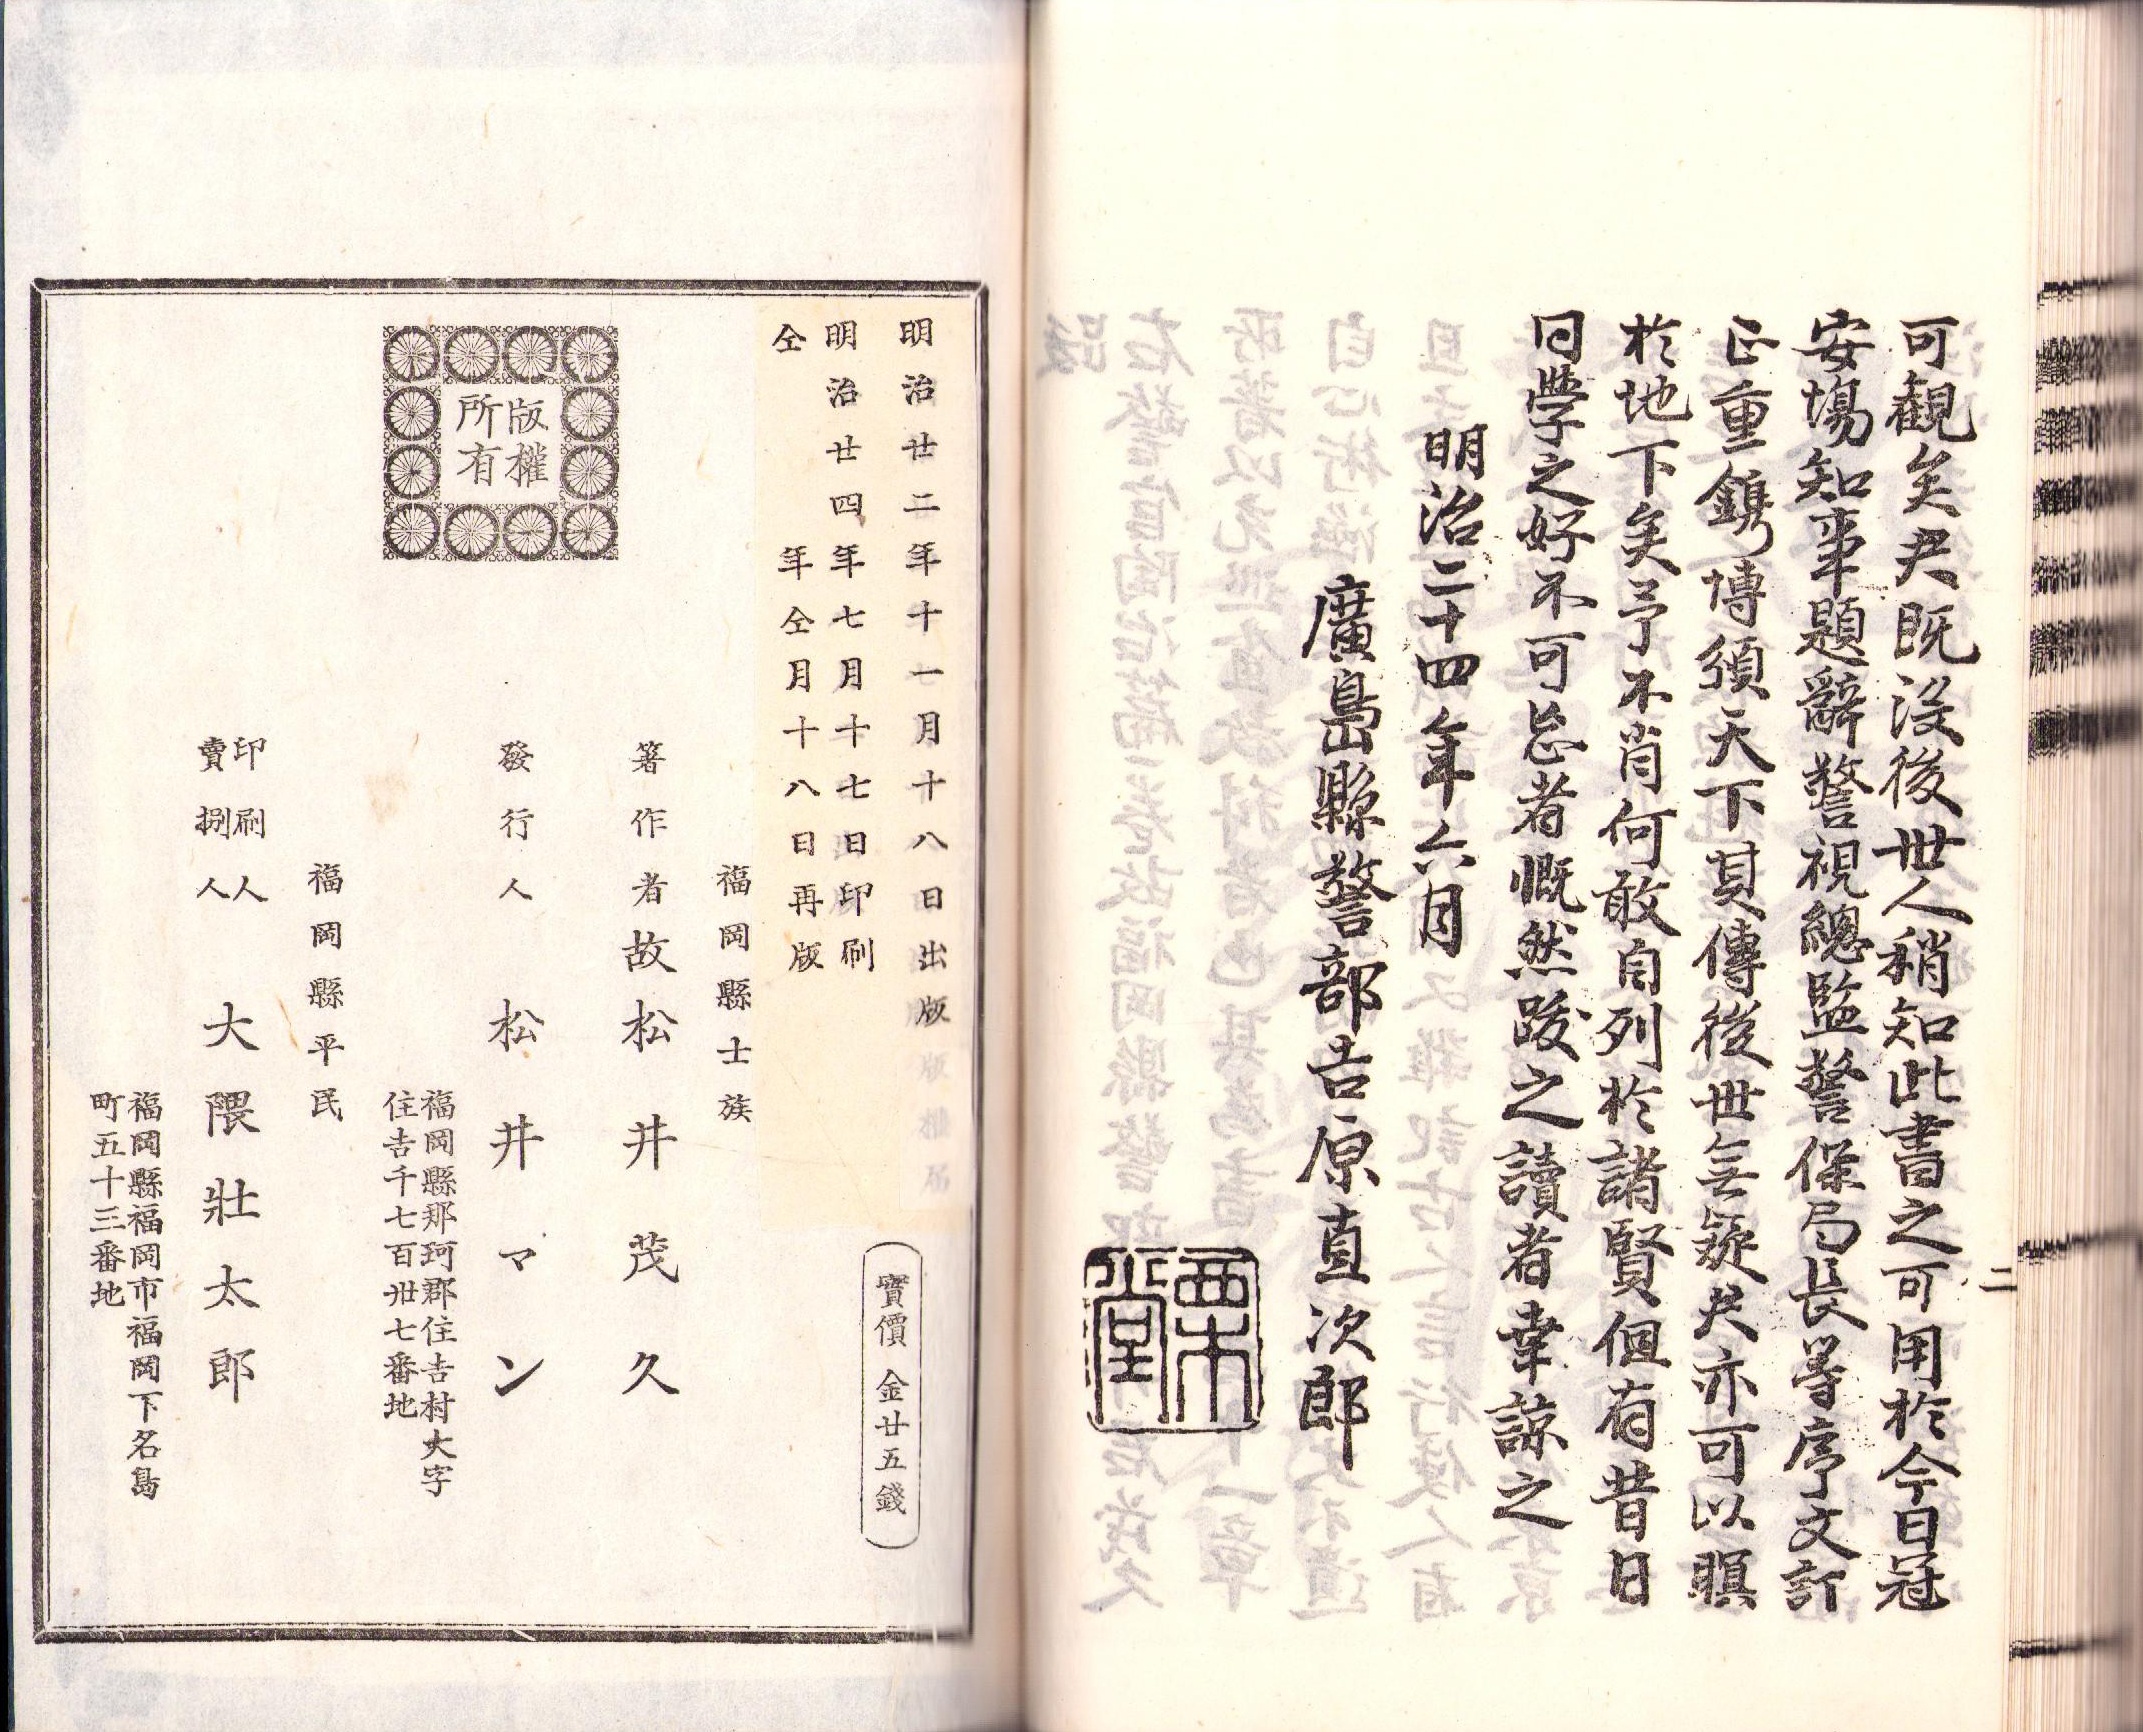 二
可觀矣尤既没後世人稍知此書之可用於今日冠
安塲知事題辭警視總監警保局長等序文訂
正重鐫博須天下其傳後世無疑尤亦可以瞑
於地下矣予不肖何敢自列於諸賢但有昔日
同學之好不可忘者慨然跋之讀者幸諒之
明治二十四年六月
廣島縣警部吉原直次郎
明治廿二年十一月十八日出版
明治廿四年七月十七日印刷
仝年仝月十八日再版
實價金廿五錢
版權
所有
福岡縣士族
著作者故松井茂久
發行人松井マン
福岡縣那珂郡住吉村大字
住吉千七百卅七番地
福岡縣平民
印刷人
賣捌人
大隈壯太郎
福岡縣福岡市福岡下名島
町五十三番地